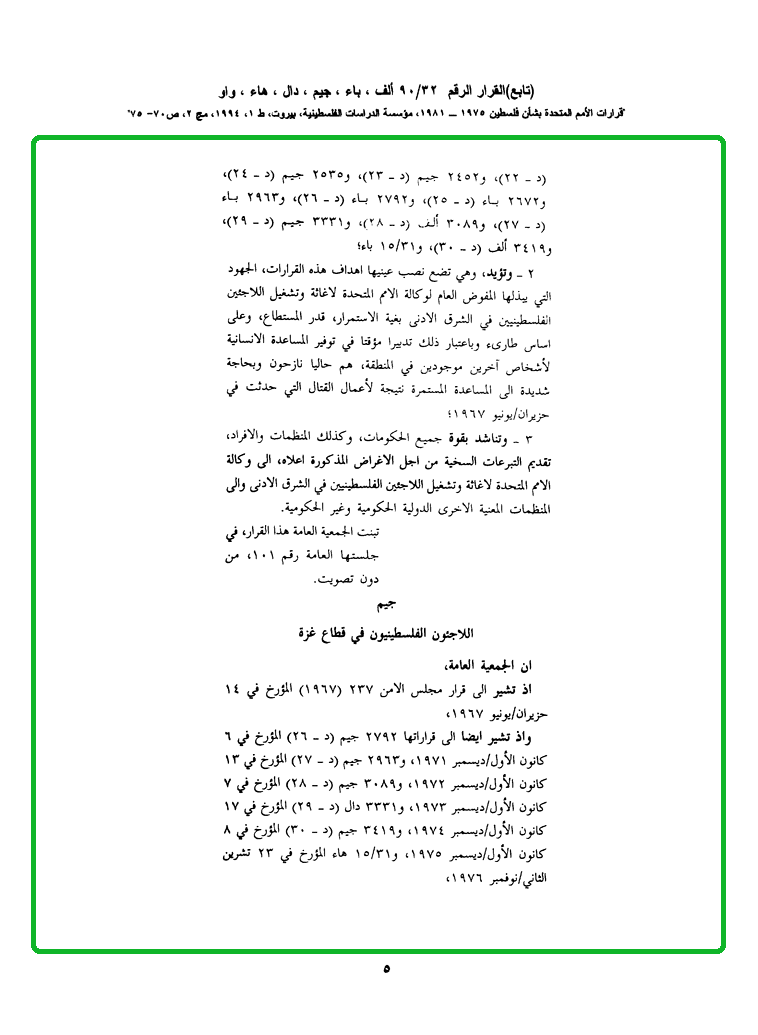 (تابع)القرار الرقم ٩٠/٣٢ ألف ، باء ، جيم ، دال ، هاء ، واو
"قرارات الأمم المتحدة بشأن فلسطين ١٩٧٥ – ١٩٨١، مؤسسة الدراسات الفلسطينية، بيروت، ط ١، ١٩٩٤، مج ٢، ص٧٠- ٧٥"
(د ـ ٢٢)، و٢٤٥٢ جيم (د ـ ٢٣)، و٢٥٣٥ جيم (د ـ ٢٤)،
و٢٦٧٢ باء (د ـ ٢٥)، و٢٧٩٢ باء (د ـ ٢٦)، و٢٩٦٣ باء
(د ـ ٢٧)، و٣٠٨٩ ألف (د ـ ٢٨)، و٣٣٣١ جيم (د ـ ٢٩)،
و٣٤١٩ ألف (د ـ ٣٠)، و١٥/٣١ باء؛
٢ ـ وتؤيد، وهي تضع نصب عينيها اهداف هذه القرارات، الجهود
التي يبذلها المفوض العام لوكالة الامم المتحدة لاغاثة وتشغيل اللاجئين
الفلسطينيين في الشرق الادنى بغية الاستمرار، قدر المستطاع، وعلى
اساس طارىء وباعتبار ذلك تدبيرا مؤقتا في توفير المساعدة الانسانية
لأشخاص آخرين موجودين في المنطقة، هم حاليا نازحون وبحاجة
شديدة الى المساعدة المستمرة نتيجة لأعمال القتال التي حدثت في
حزيران/يونيو ١٩٦٧؛
٣ ـ وتناشد بقوة جميع الحكومات، وكذلك المنظمات والافراد،
تقديم التبرعات السخية من اجل الاغراض المذكورة اعلاه، الى وكالة
الامم المتحدة لاغاثة وتشغيل اللاجئين الفلسطينيين في الشرق الادنى والى
المنظمات المعنية الاخرى الدولية الحكومية وغير الحكومية.
تبنت الجمعية العامة هذا القرار، في
جلستها العامة رقم ١٠١، من
دون تصويت.
جيم
اللاجئون الفلسطينيون في قطاع غزة
ان الجمعية العامة،
اذ تشير الى قرار مجلس الامن ٢٣٧ (١٩٦٧) المؤرخ في ١٤
حزيران/يونيو ١٩٦٧،
واذ تشير ايضا الى قراراتها ٢٧٩٢ جيم (د ـ ٢٦) المؤرخ في ٦
كانون الأول/ديسمبر ١٩٧١، و٢٩٦٣ جيم (د ـ ٢٧) المؤرخ في ١٣
كانون الأول/ديسمبر ١٩٧٢، و٣٠٨٩ جيم (د ـ ٢٨) المؤرخ في ٧
كانون الأول/ديسمبر ١٩٧٣، و٣٣٣١ دال (د ـ ٢٩) المؤرخ في ١٧
كانون الأول/ديسمبر ١٩٧٤، و٣٤١٩ جيم (د ـ ٣٠) المؤرخ في ٨
كانون الأول/ديسمبر ١٩٧٥، و١٥/٣١ هاء المؤرخ في ٢٣ تشرين
الثاني/نوفمبر ١٩٧٦،
٥